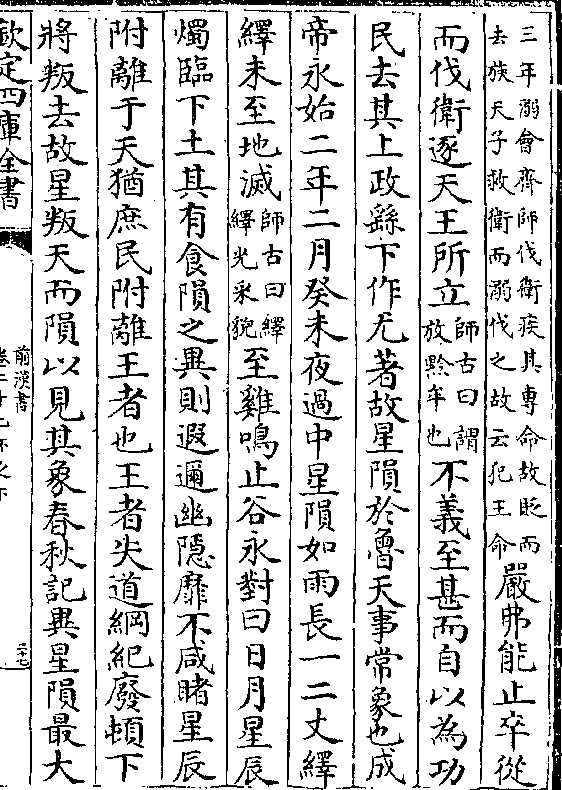 三年溺會齊師伐衛疾其專命故貶而
去族天子救衛而溺伐之故云犯王命
嚴弗能止卒從
而伐衛逐天王所立
師古曰謂
放黔牟也
不義至甚而自以為功
民去其上政繇下作尤著故星隕於魯天事常象也成
帝永始二年二月癸未夜過中星隕如雨長一二丈繹
繹未至地滅
師古曰繹
繹光采貌
至雞鳴止谷永對曰日月星辰
燭臨下土其有食隕之異則遐邇幽隱靡不咸睹星辰
附離于天猶庶民附離王者也王者失道綱紀廢頓下
將叛去故星叛天而隕以見其象春秋記異星隕最大
欽定四庫全書
前漢書